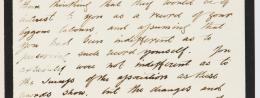 thinking that they would be of
interest to you as a record of your
labours and assuming that
you had been indifferent as to
such record yourself. You
were not indifferent as to
the doings of the association as these
records show, but the changes and